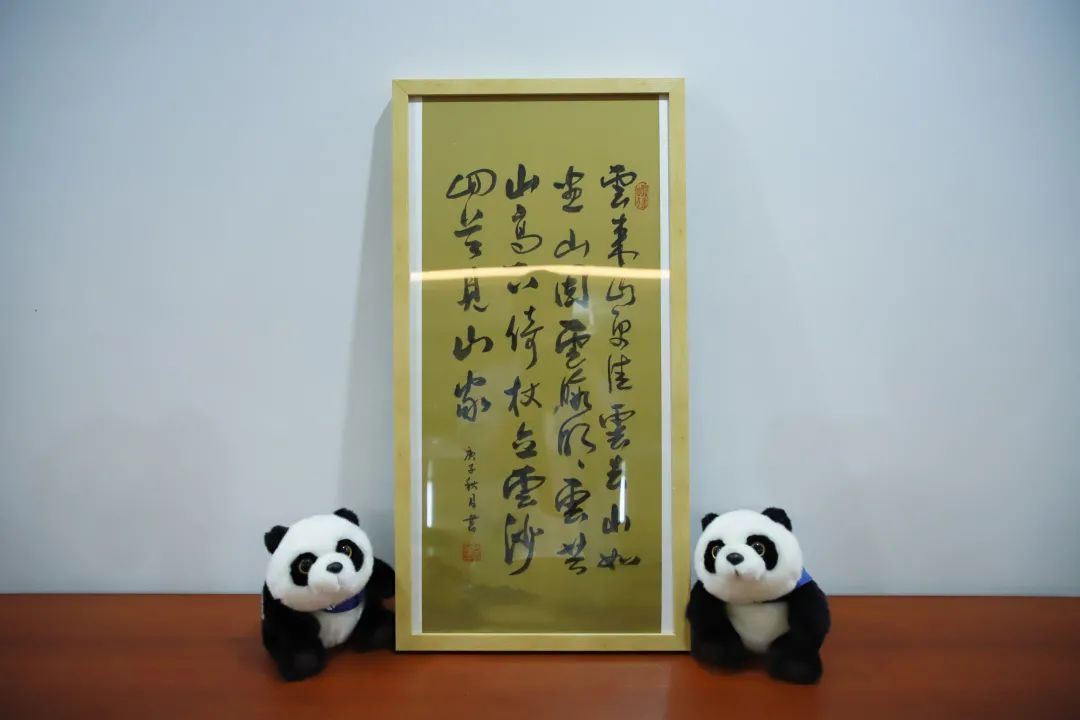 雲來山更佳雲去山如
畫山因雲晦明雲共
山高下倚杖立雲沙
回首見山家
庚子秋月書